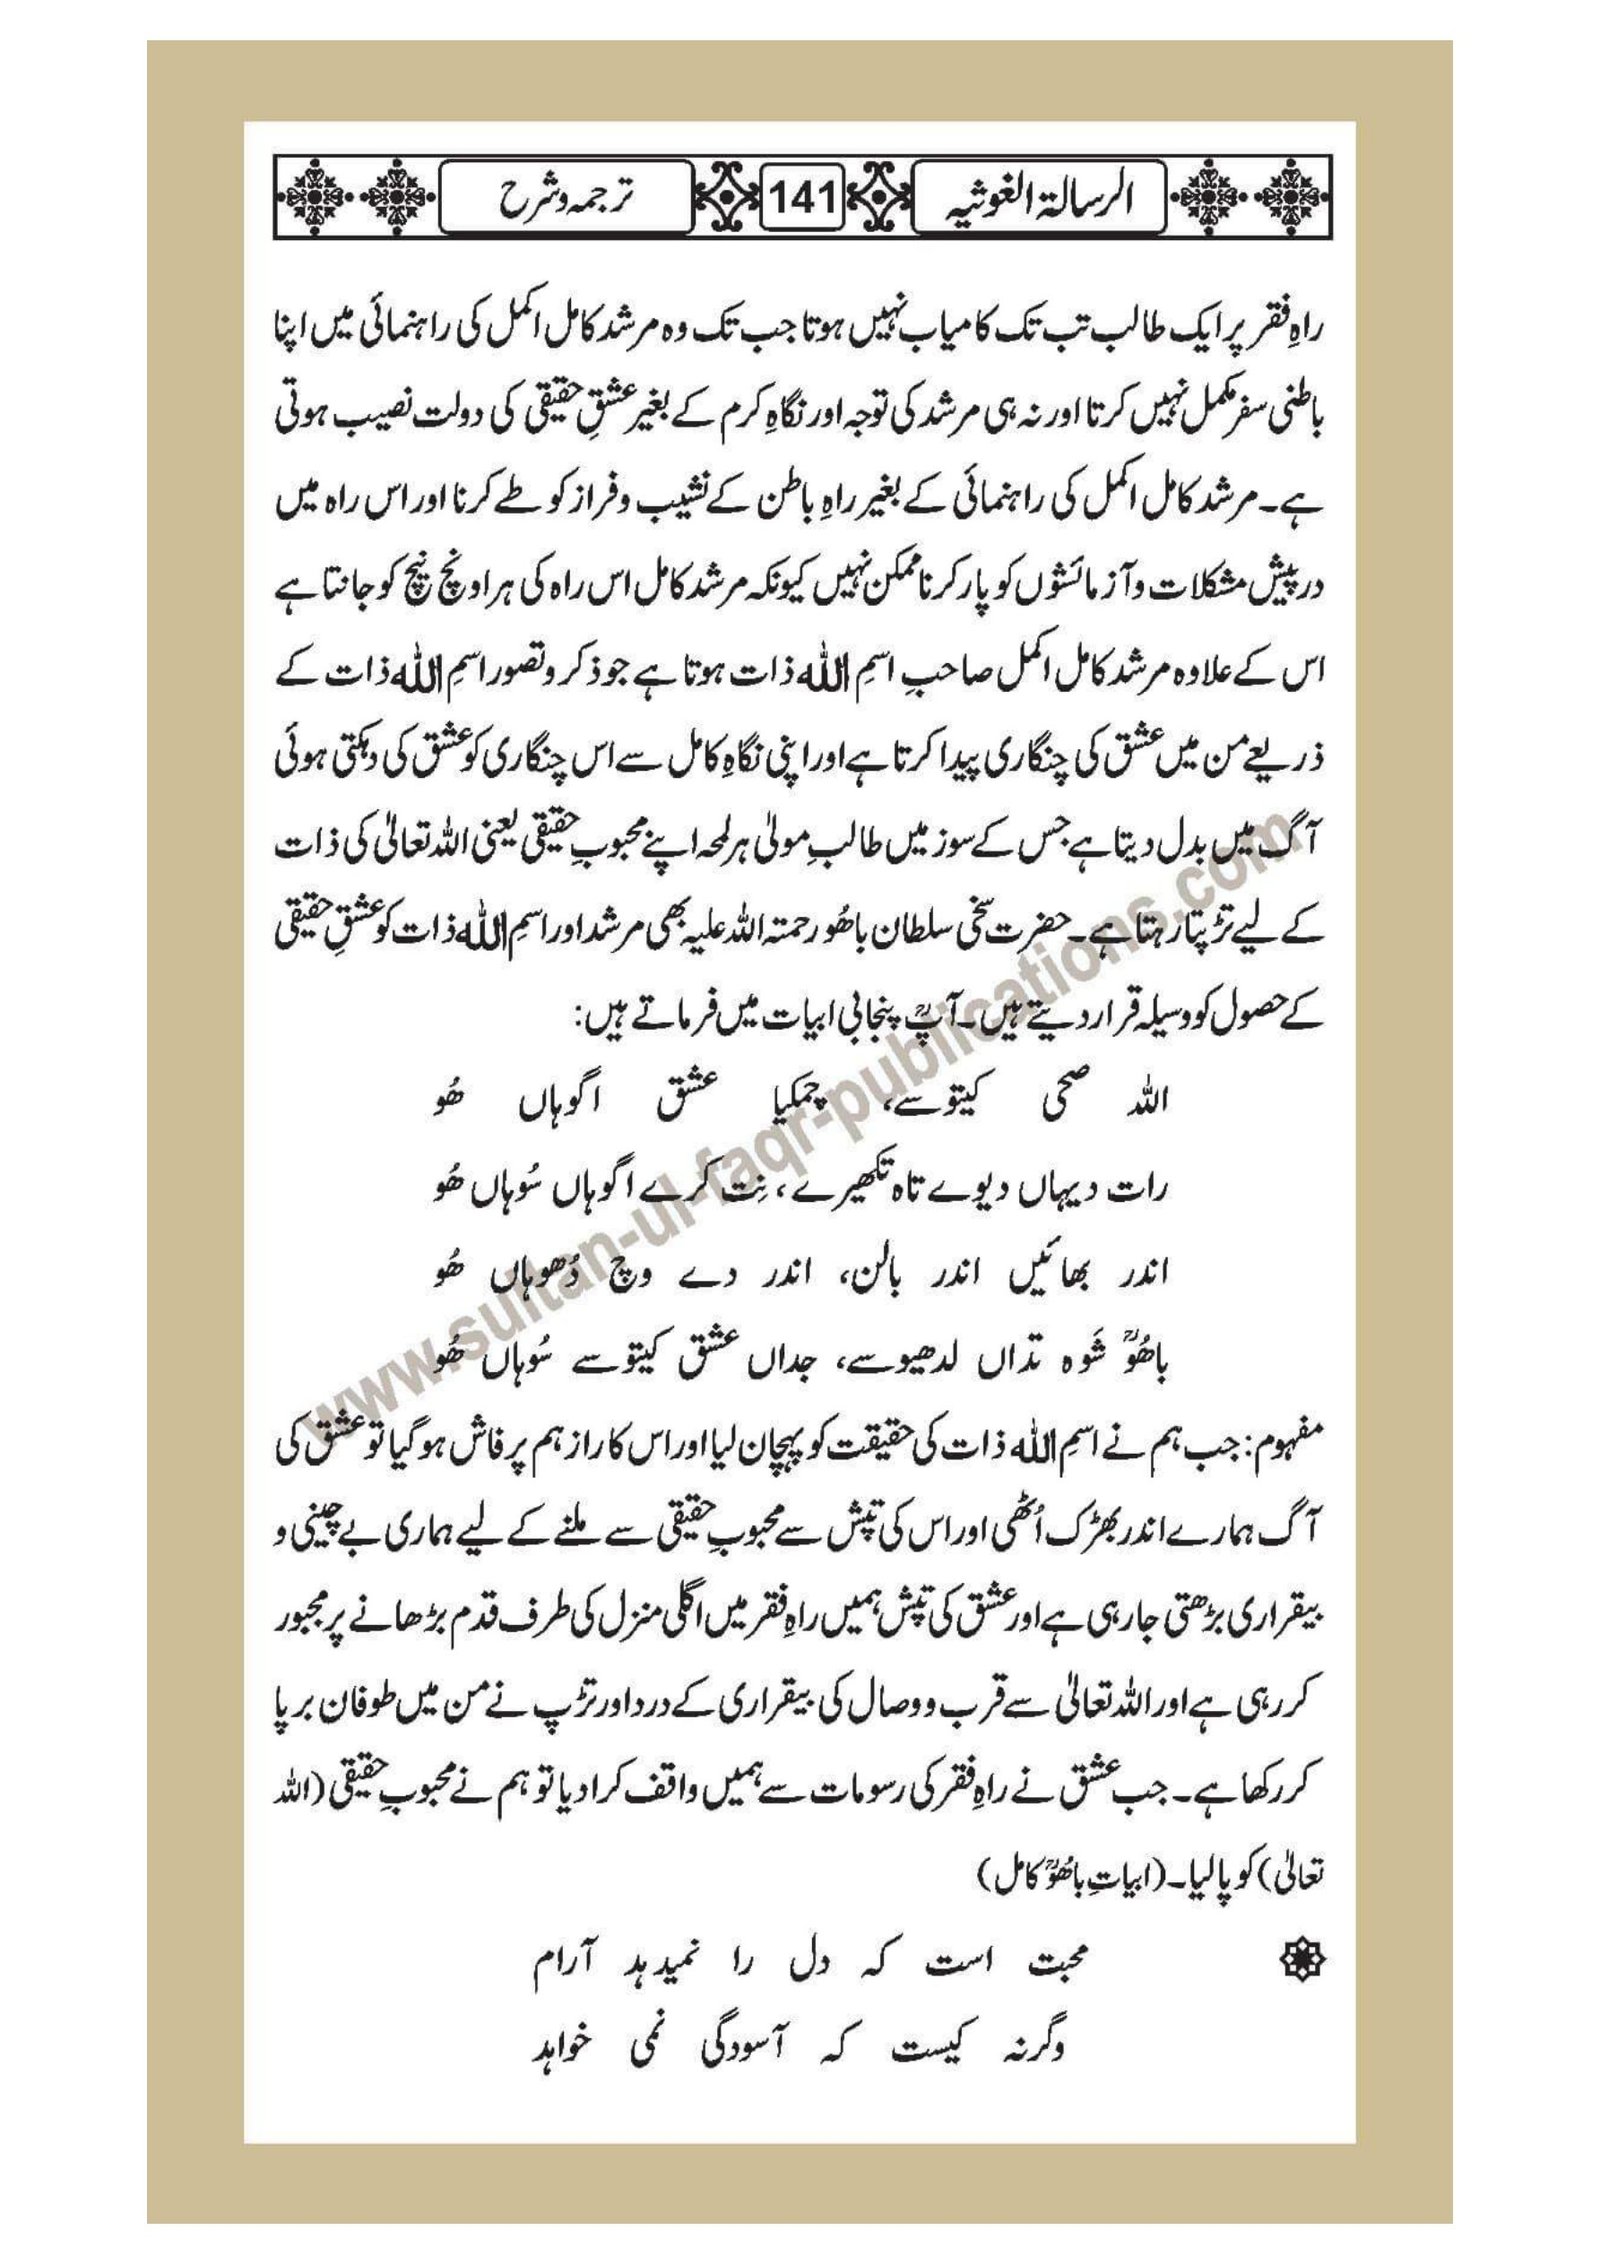 الرسالۃ الغوثیہ 141 ترجمہ و شرح
راہِ فقر پر ایک طالب تب تک کامیاب نہیں ہوتا جب تک وہ مرشد کامل اکمل کی راہنمائی میں اپنا
باطنی سفر مکمل نہیں کرتا اور نہ ہی مرشد کی توجہ اور نگاہِ کرم کے بغیر عشقِ حقیقی کی دولت نصیب ہوتی
ہے۔ مرشد کامل اکمل کی راہنمائی کے بغیر راہِ باطن کے نشیب و فراز کو طے کرنا اور اس راہ میں
درپیش مشکلات و آزمائشوں کو پار کرنا ممکن نہیں کیونکہ مرشد کامل اس راہ کی ہر اونچ نیچ کو جانتا ہے
اس کے علاوہ مرشد کامل اکمل صاحبِ اسمِ اللہ ذات ہوتا ہے جو ذکر و تصور اسمِ اللہ ذات کے
ذریعے من میں عشق کی چنگاری پیدا کرتا ہے اور اپنی نگاہِ کامل سے اس چنگاری کو عشق کی دہکتی ہوئی
آگ میں بدل دیتا ہے جس کے سوز میں طالبِ مولیٰ ہر لمحہ اپنے محبوبِ حقیقی یعنی اللہ تعالیٰ کی ذات
کے لیے تڑپتا رہتا ہے۔ حضرت سخی سلطان باھُو رحمتہ اللہ علیہ بھی مرشد اور اسمِ اللہ ذات کو عشقِ حقیقی
کے حصول کو وسیلہ قرار دیتے ہیں۔ آپؒ پنجابی ابیات میں فرماتے ہیں:
اللہ صحی کیتوسے، چمکیا عشق اگوہاں ھُو
رات دیہاں دیوے تاہ تکھیرے، نِت کرے اگوہاں سُوہاں ھُو
اندر بھائیں اندر بالن، اندر دے وچ دُھوہاں ھُو
باھُوؒ شَوہ تداں لدھیوسے، جداں عشق کیتوسے سُوہاں ھُو
مفہوم: جب ہم نے اسمِ اللہ ذات کی حقیقت کو پہچان لیا اور اس کا راز ہم پر فاش ہو گیا تو عشق کی
آگ ہمارے اندر بھڑک اُٹھی اور اس کی تپش سے محبوبِ حقیقی سے ملنے کے لیے ہماری بے چینی و
بیقراری بڑھتی جارہی ہے اور عشق کی تپش ہمیں راہِ فقر میں اگلی منزل کی طرف قدم بڑھانے پر مجبور
کر رہی ہے اور اللہ تعالیٰ سے قرب و وصال کی بیقراری کے درد اور تڑپ نے من میں طوفان برپا
کر رکھا ہے۔ جب عشق نے راہِ فقر کی رسومات سے ہمیں واقف کرادیا تو ہم نے محبوبِ حقیقی (اللہ
تعالیٰ) کو پالیا۔ (ابیاتِ باھُوؒ کامل)
محبت است کہ دل را نمیدہد آرام
وگرنہ کیست کہ آسودگی نمی خواہد
www.sultan-ul-faqr-publications.com